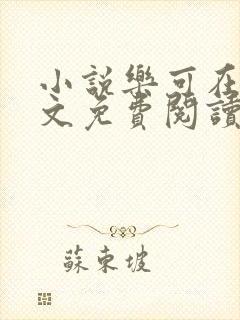 小說樂可在
文免費閱讀
蘇東坡